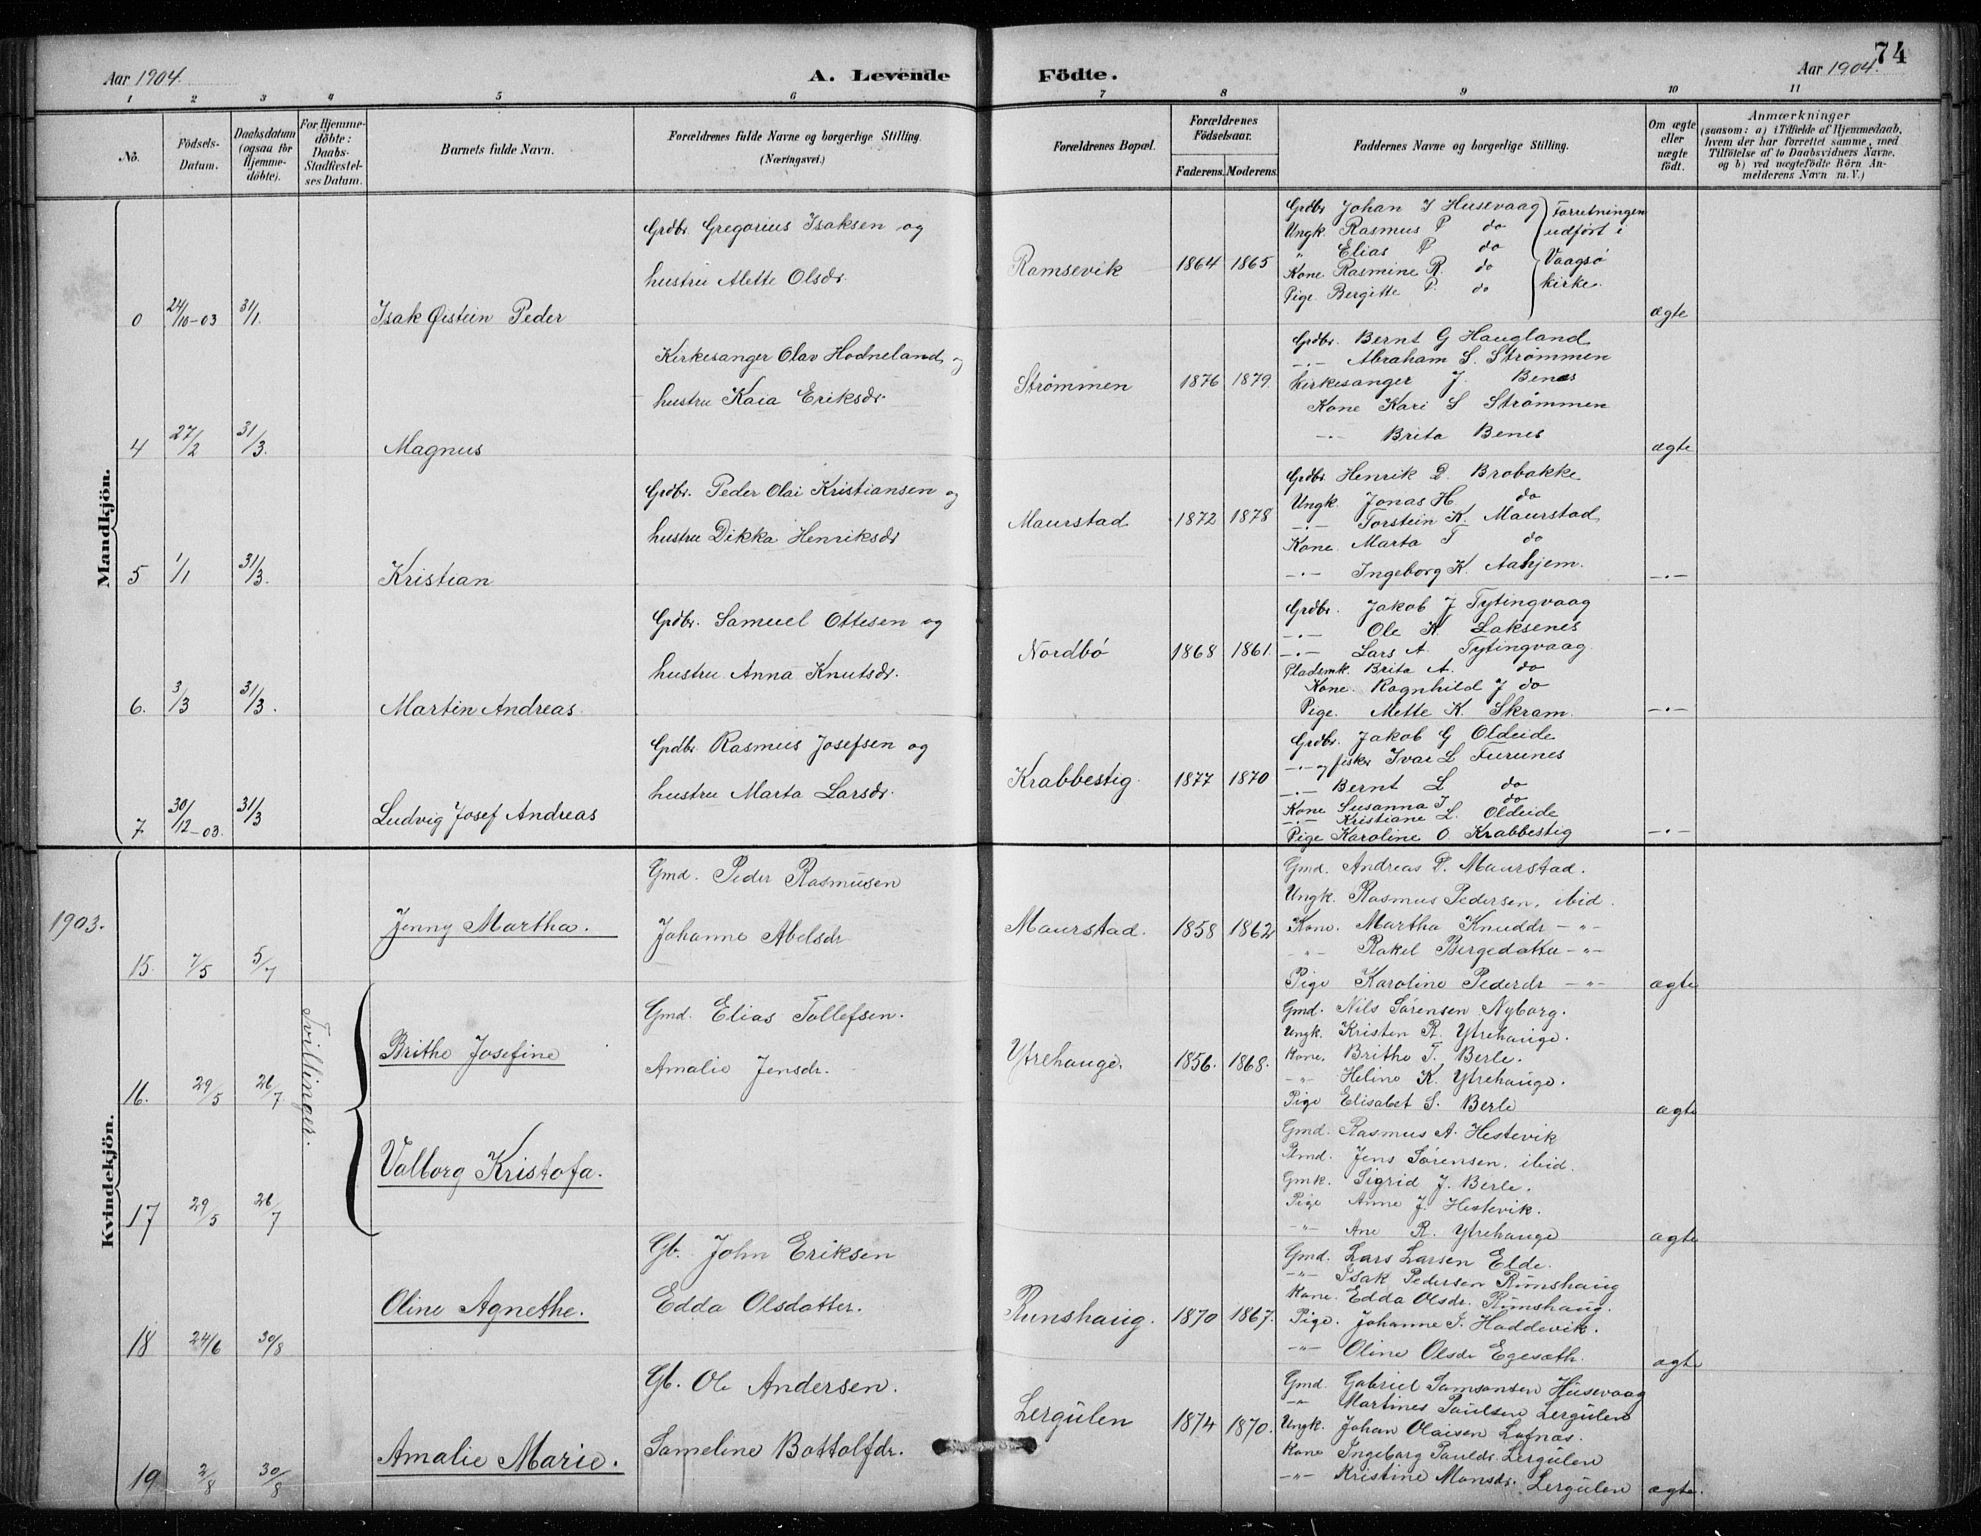 74
Aar 1904.
A. Levende Födte.
Aar 1904.
1 2 3 4 5 6 7 8 9 10 11
No.
Födsels-Datum.
Daabsdatum (ogsaa for Hjemme-döbte).
For Hjemme-döbte: Daabs-Stadfæstel-ses Datum.
Barnets fulde Navn.
Forældrenes fulde Navne og borgerlige Stilling. (Næringsvei.)
Forældrenes Bopæl.
Forældrenes Födselsaar.
Faderens. Moderens.
Faddernes Navne og borgerlige Stilling.
Om ægte eller uægte födt.
Anmærkninger
(saasom: a) i Tilfælde af Hjemmedaab, hvem der har forrettet samme, med Tilföielse af to Daabsvidners Navne, og b) ved uægtefödte Börn An-melderens Navn m. V.)
Mandkjön.
0 24/10-03 31/1. Isak Øistein Peder
Grdbr. Gregorius Isaksen og
hustru Alette Olsdr.
Ramsevik 1864 1865
Grdbr Johan I Husevaag
Ungk. Rasmus P do
" Elias P do
Kone Rasmine R. do
Pige Bergitte P. do
Forretningen
udført i
Vaagsø
kirke.
ægte
4 27/2 31/3. Magnus
Kirkesanger Olav Hodneland og
hustru Kaia Eriksdr.
Strømmen 1876 1879
Grdbr. Bernt G Haugland
-.- Abraham S. Strømmen
Kirkesanger J. Benes
Kone Kari S Strømmen
-.- Brita Benes
ægte
5 1/1 31/3. Kristian
Grdbr. Peder Olai Kristiansen og
hustru Dikka Henriksdr
Maurstad 1872 1878
Grdbr. Henrik D. Brobakke
Ungk. Jonas H. do
-.- Torstein K. Maurstad
Kone. Marta T do
-.- Ingeborg K. Aahjem.
-.-
6. 3/3 31/3. Martin Andreas
Grdbr. Samuel Ottesen og
hustru Anna Knutsdr.
Nordbø 1868 1861.
Grdbr. Jakob J Tytingvaag
-.- Ole K. Laksenes
-.- Lars A. Tytingvaag
Pladsmk. Brita A. do
Kone. Ragnhild J do
Pige. Mette K. Skram.
-.-
7 30/12-03. 31/3 Ludvig Josef Andreas
Grdbr. Rasmus Josefsen og
hustru Marta Larsdr.
Krabbestig. 1877 1870
Grdbr. Jakob G Oldeide
-.- og fisker Ivar L Furunes
-.- Bernt L do
Kone Susanna I do
-.- Kristiane L. Oldeide
Pige Karoline O. Krabbestig
-.-
1903.
Kvindekjön.
15. 7/5 5/7 Jenny Martha.
Gmd. Peder Rasmusen
Johanne Abelsdr
Maurstad. 1858 1862
Gmd. Andreas P. Maurstad.
Ungk. Rasmus Pedersen, ibid.
Kone. Martha Knudsdr -"-
-"- Rakel Bergedatter -"-
Pige Karoline Pedersdr -"-
ægte
Tvillinger.
16. 29/5 26/7. Brithe Josefine
Gmd. Elias Tollefsen.
Amalie Jensdr.
Ytrehauge. 1856. 1868.
Gmd. Nils Sørensen Nyborg.
Ungk. Kristen R. Ytrehauge.
Kone. Brithe T. Berle.
-"- Heline K. Ytrehauge.
Pige Elisabet S. Berle
ægte
17 29/5 26/7 Valborg Kristofa.
Gmd. Rasmus A. Hestevik
Jens Sørensen, ibid.
Gmk. Sigrid J. Berle.
Pige Anne J. Hestevik.
-"- Ane R. Ytrehauge
ægte
18 24/6 30/8 Oline Agnethe.
Gb. John Eriksen
Edda Olsdatter.
Runshaug. 1870 1867.
Gmd. Lars Larsen Elde.
-"- Isak Pedersen Runshaug
Kone. Edda Olsdr. Runshaug.
Pige. Johanne I. Haddevik.
-"- Oline Olsdr Egesæth.
ægte
19 2/8 30/8 Amalie Marie.
Gb. Ole Andersen.
Sameline Bottolfdr.
Lergulen 1874 1870.
Gmd. Gabriel Samsonsen Husevaag
-"- Martines Paulsen Lergulen
Ungk. Johan Olaisen Lofnæs.
Kone Ingeborg Pauldr. Lergulen
-"- Kristine Monsdr. Lergulen
ægte.